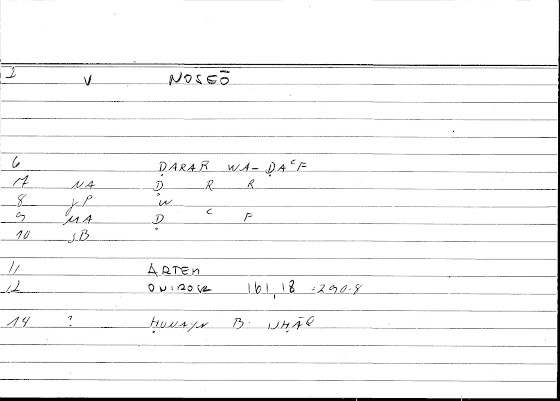 1 V NOSEŌ
6 ḌARAR WA-ḌAᶜF
17 NA Ḍ R R
8 yP W
9 MA Ḍ ᶜ F
10 sB
11 ARTEM
12 ONIROSR 161,18 =290.8
14 ? ḤUNAYN B.